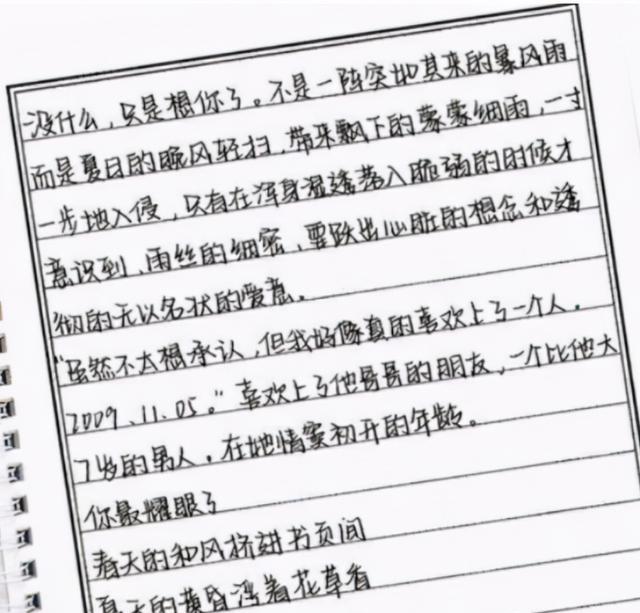 没什么，只是想你了。不是一阵突如其来的暴风雨
而是夏日的晚风轻扫，带来飘下的蒙蒙细雨，一寸
一步地入侵，只有在浑身湿透落入脆弱的时候才
意识到，雨丝的细密、要跃出心脏的想念和透
彻的无以名状的爱意。
“虽然不太想承认，但我好像真的喜欢上了一个人。
2009、11、05。”喜欢上了他哥哥的朋友，一个比他大
7岁的男人，在她情窦初开的年龄。
你最耀眼了
春天的和风挤进书页间
夏天的黄昏浮着花草香